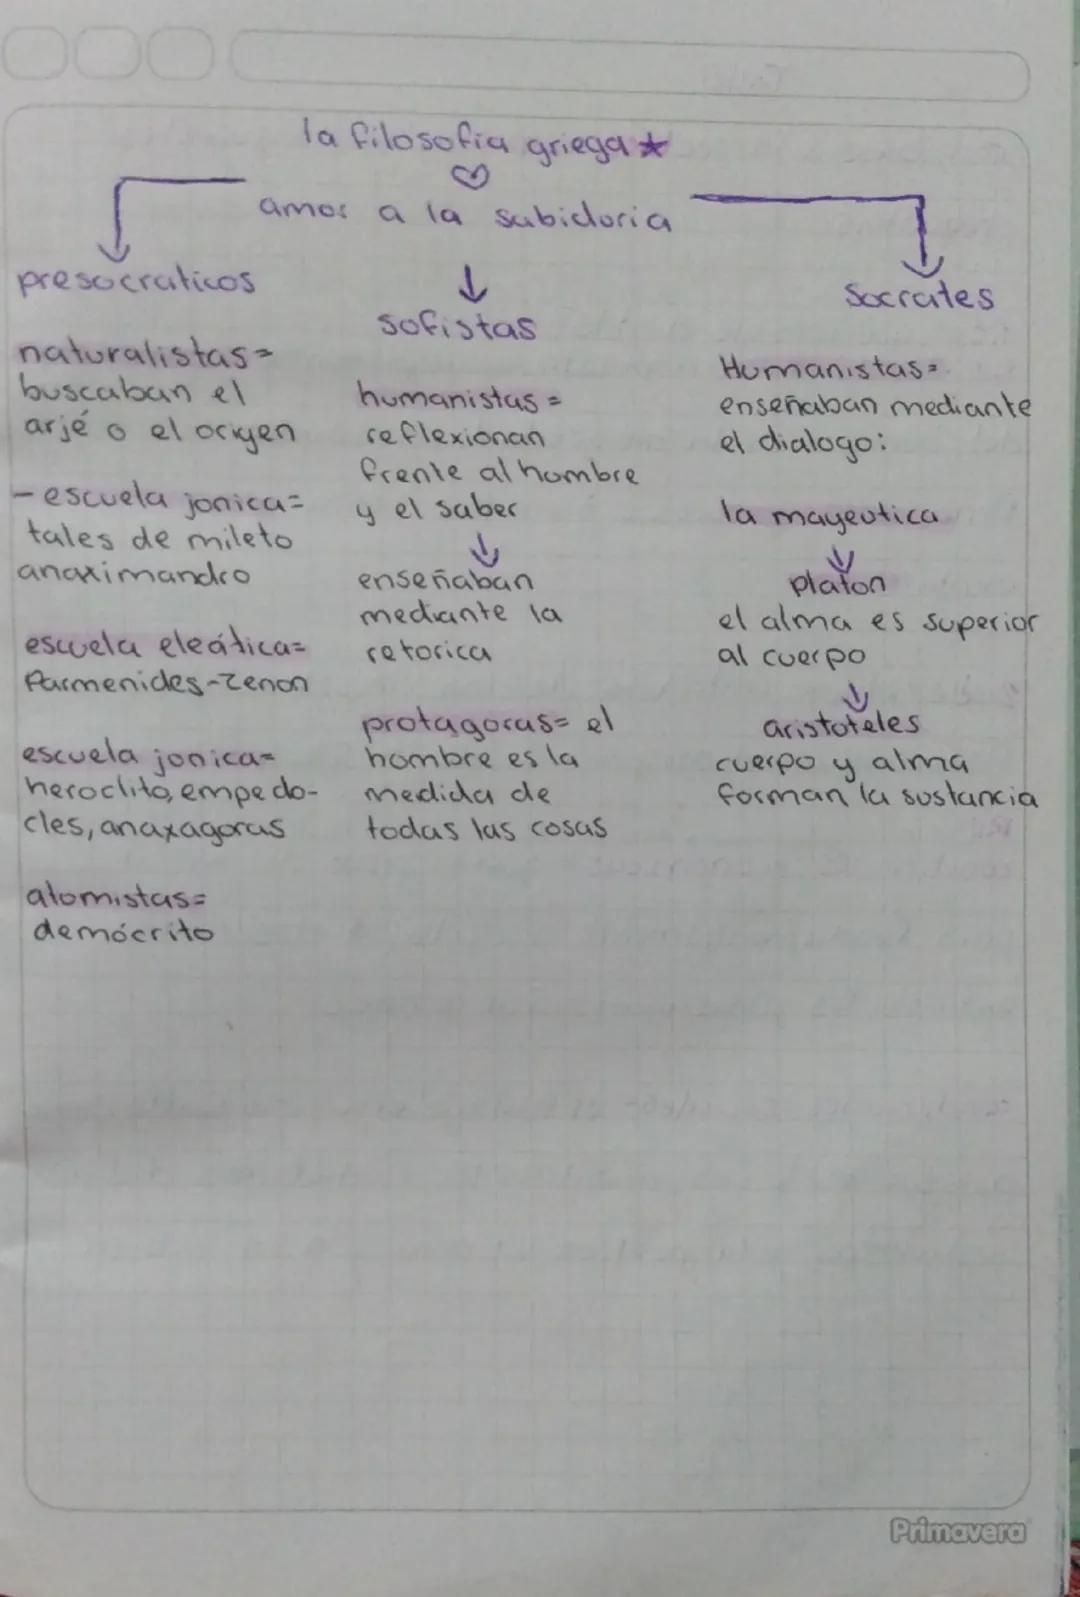 la filosofia griega
amor a la sabiduria
presocraticos
naturalistas=
buscaban el
arjé o el origen
- escuela jonica=
tales de mileto
anaximandro
escuela eleática=
Parmenides-Zenon
escuela jonica=
heroclito, empedo-
cles, anaxagoras
atomistas=
demócrito
sofistas
humanistas=
reflexionan
frente al hombre
y el saber
enseñaban
mediante la
retorica
protagoras= el
hombre es la
medida de
todas las cosas
Socrates
Humanistas=
enseñaban mediante
el dialogo:
la mayeutica
platon
el alma es superior
al cuerpo
aristoteles
cuerpo y alma
forman la sustancia
Primavera